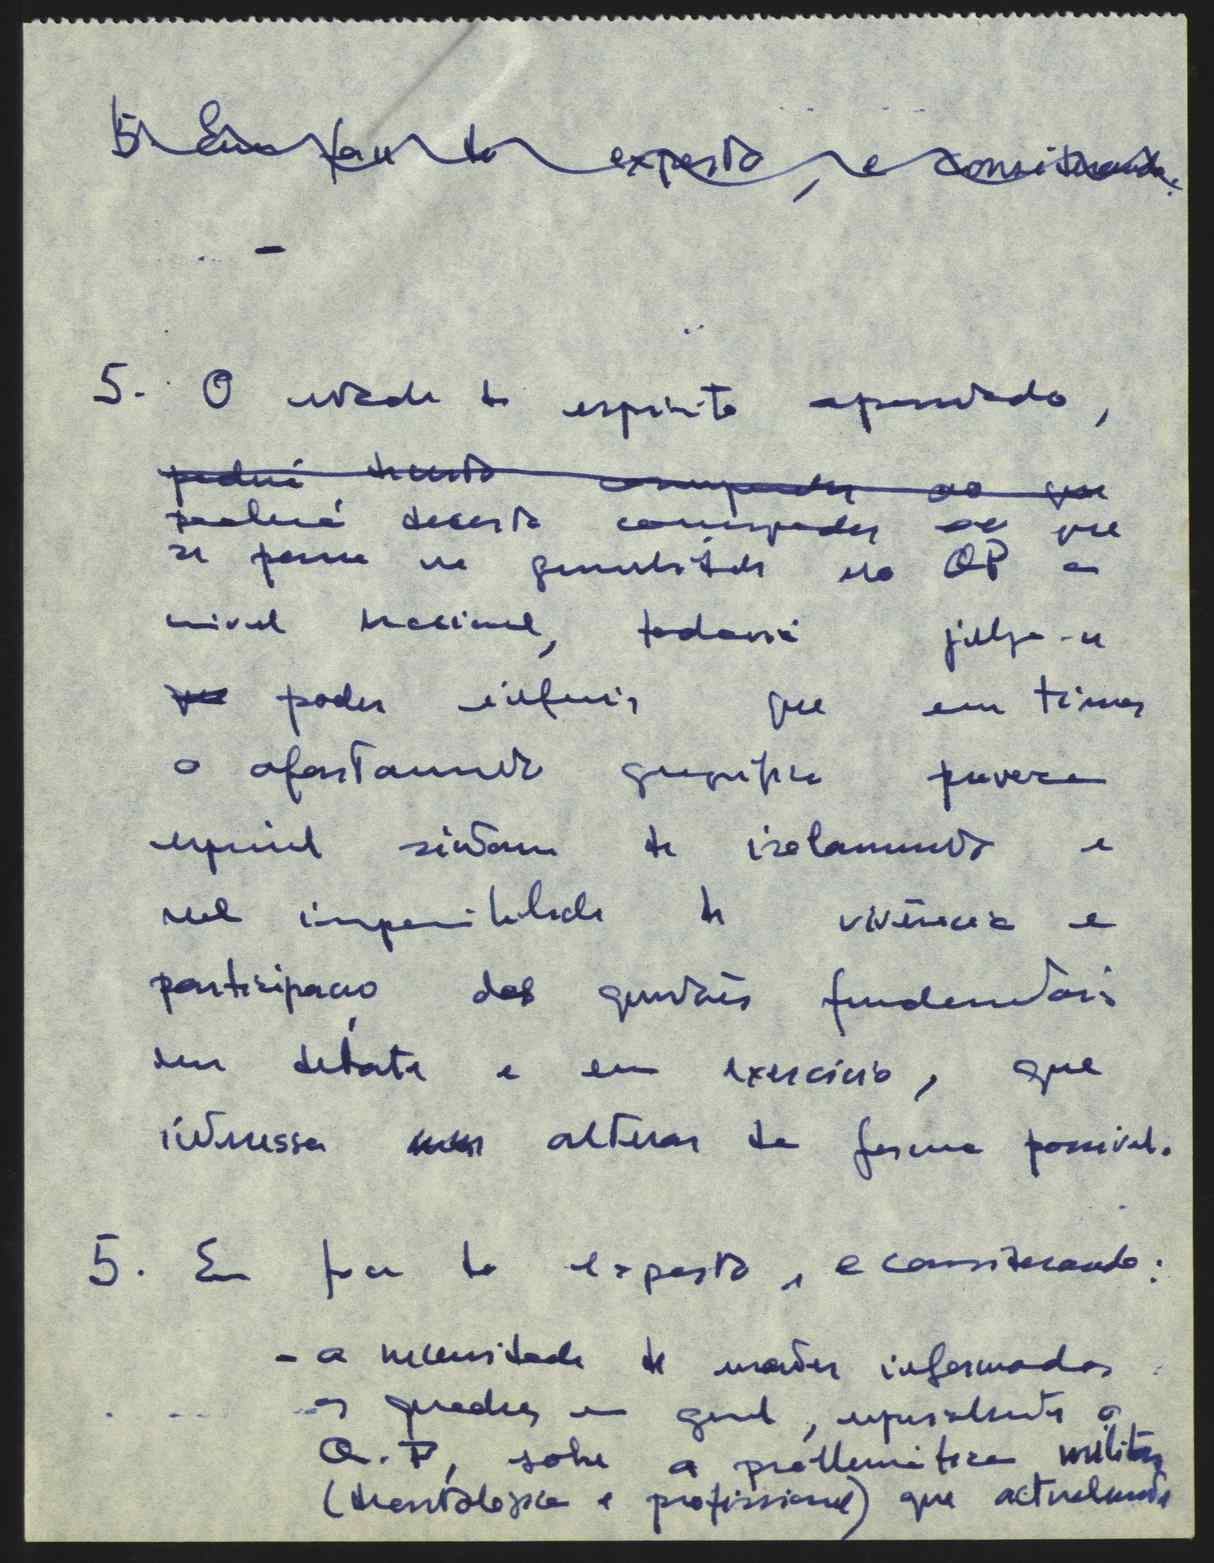 5. Em face do exposto, e considerando:
-
5. O estado de espírito apontado,
poderá decerto corresponder ao que
poderá decerto corresponder ao que
se passa na generalidade no QP a
nível nacional, todavia julga-se
que poder inferir que em Timor
o afastamento geográfico provoca
especial sintoma de isolamento e
real impossibilidade de vivência e
participação das questões fundamentais
em debate e em exercício, que
interessa alterar de forma possível.
5. Em face do exposto, e considerando:
- a necessidade de manter informados
os quadros em geral, especialmente o
Q.P, sobre a problemática militar
(deontológica e profissional) que actualmente